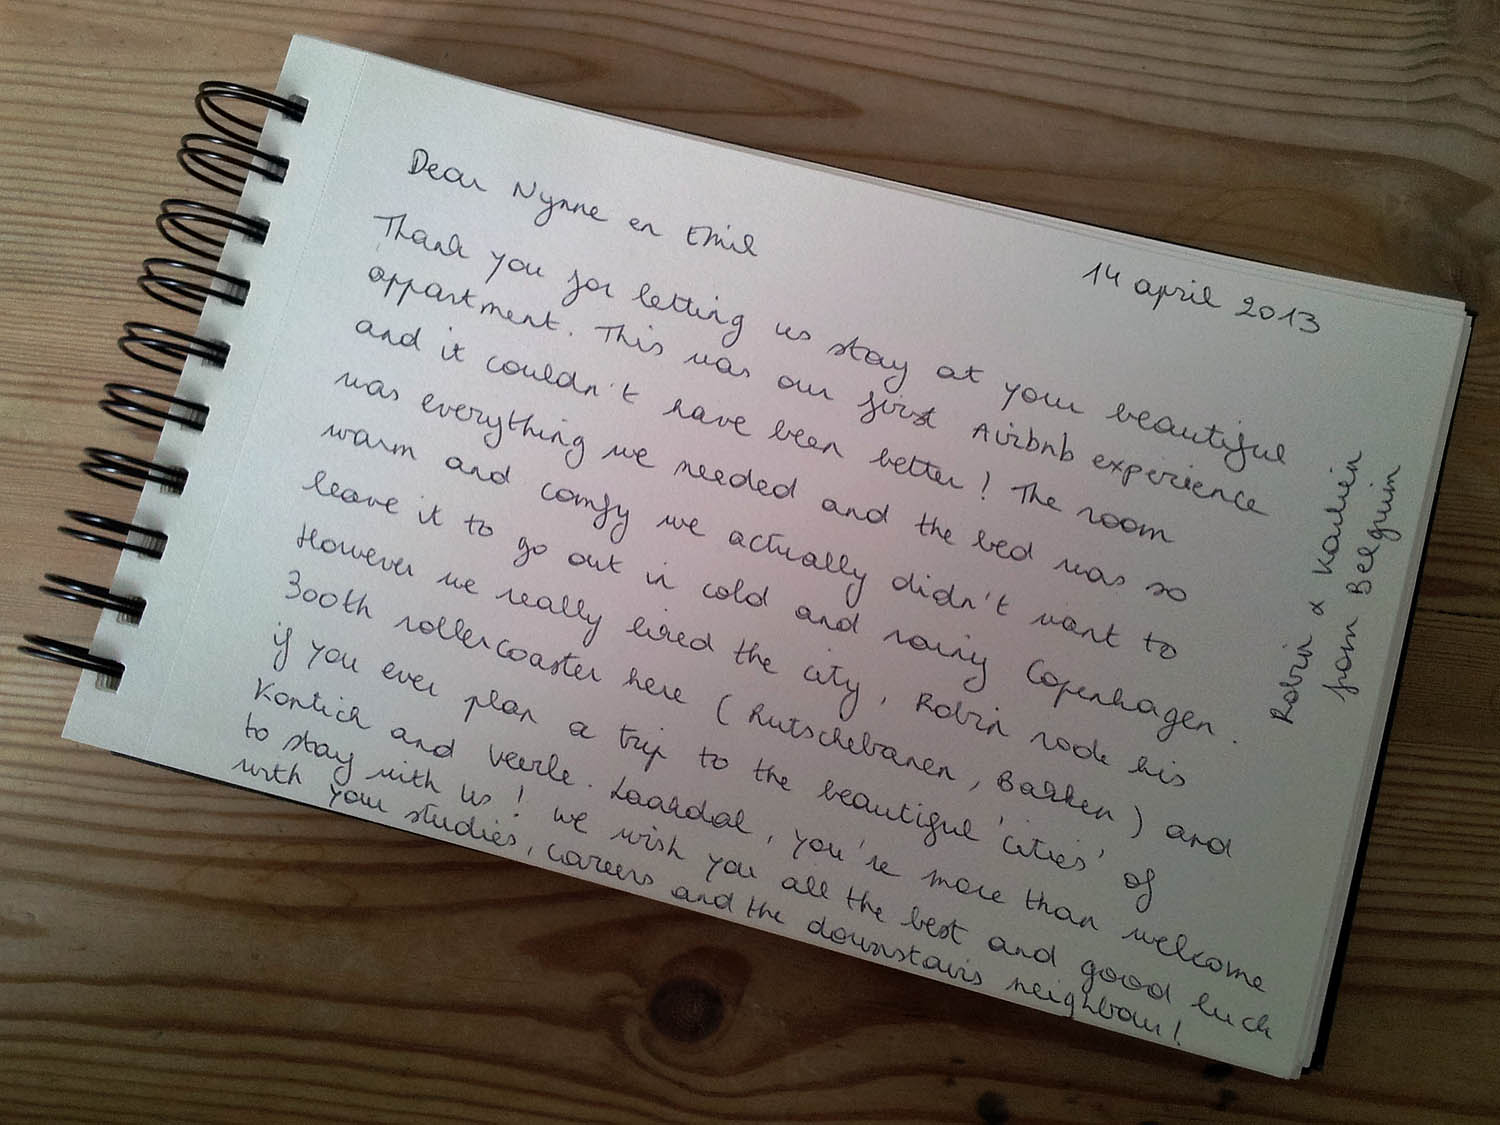 14 april 2013
Dear Nynne en Emil
Thank you for letting us stay at your beautiful
appartment. This was our first Airbnb experience
and it couldn't have been better! The room
was everything we needed and the bed was so
warm and comfy we actually didn't want to
leave it to go out in cold and rainy Copenhagen.
However we really liked the city, Robin rode his
300th rollercoaster here (Rutschebanen, Bakken) and
if you ever plan a trip to the beautiful 'cities' of
Kontich and Veerle-Laakdal, you're more than welcome
to stay with us! We wish you all the best and good luck
with your studies, careers and the downstairs neighbour!
Robin & Karlien
from Belgium